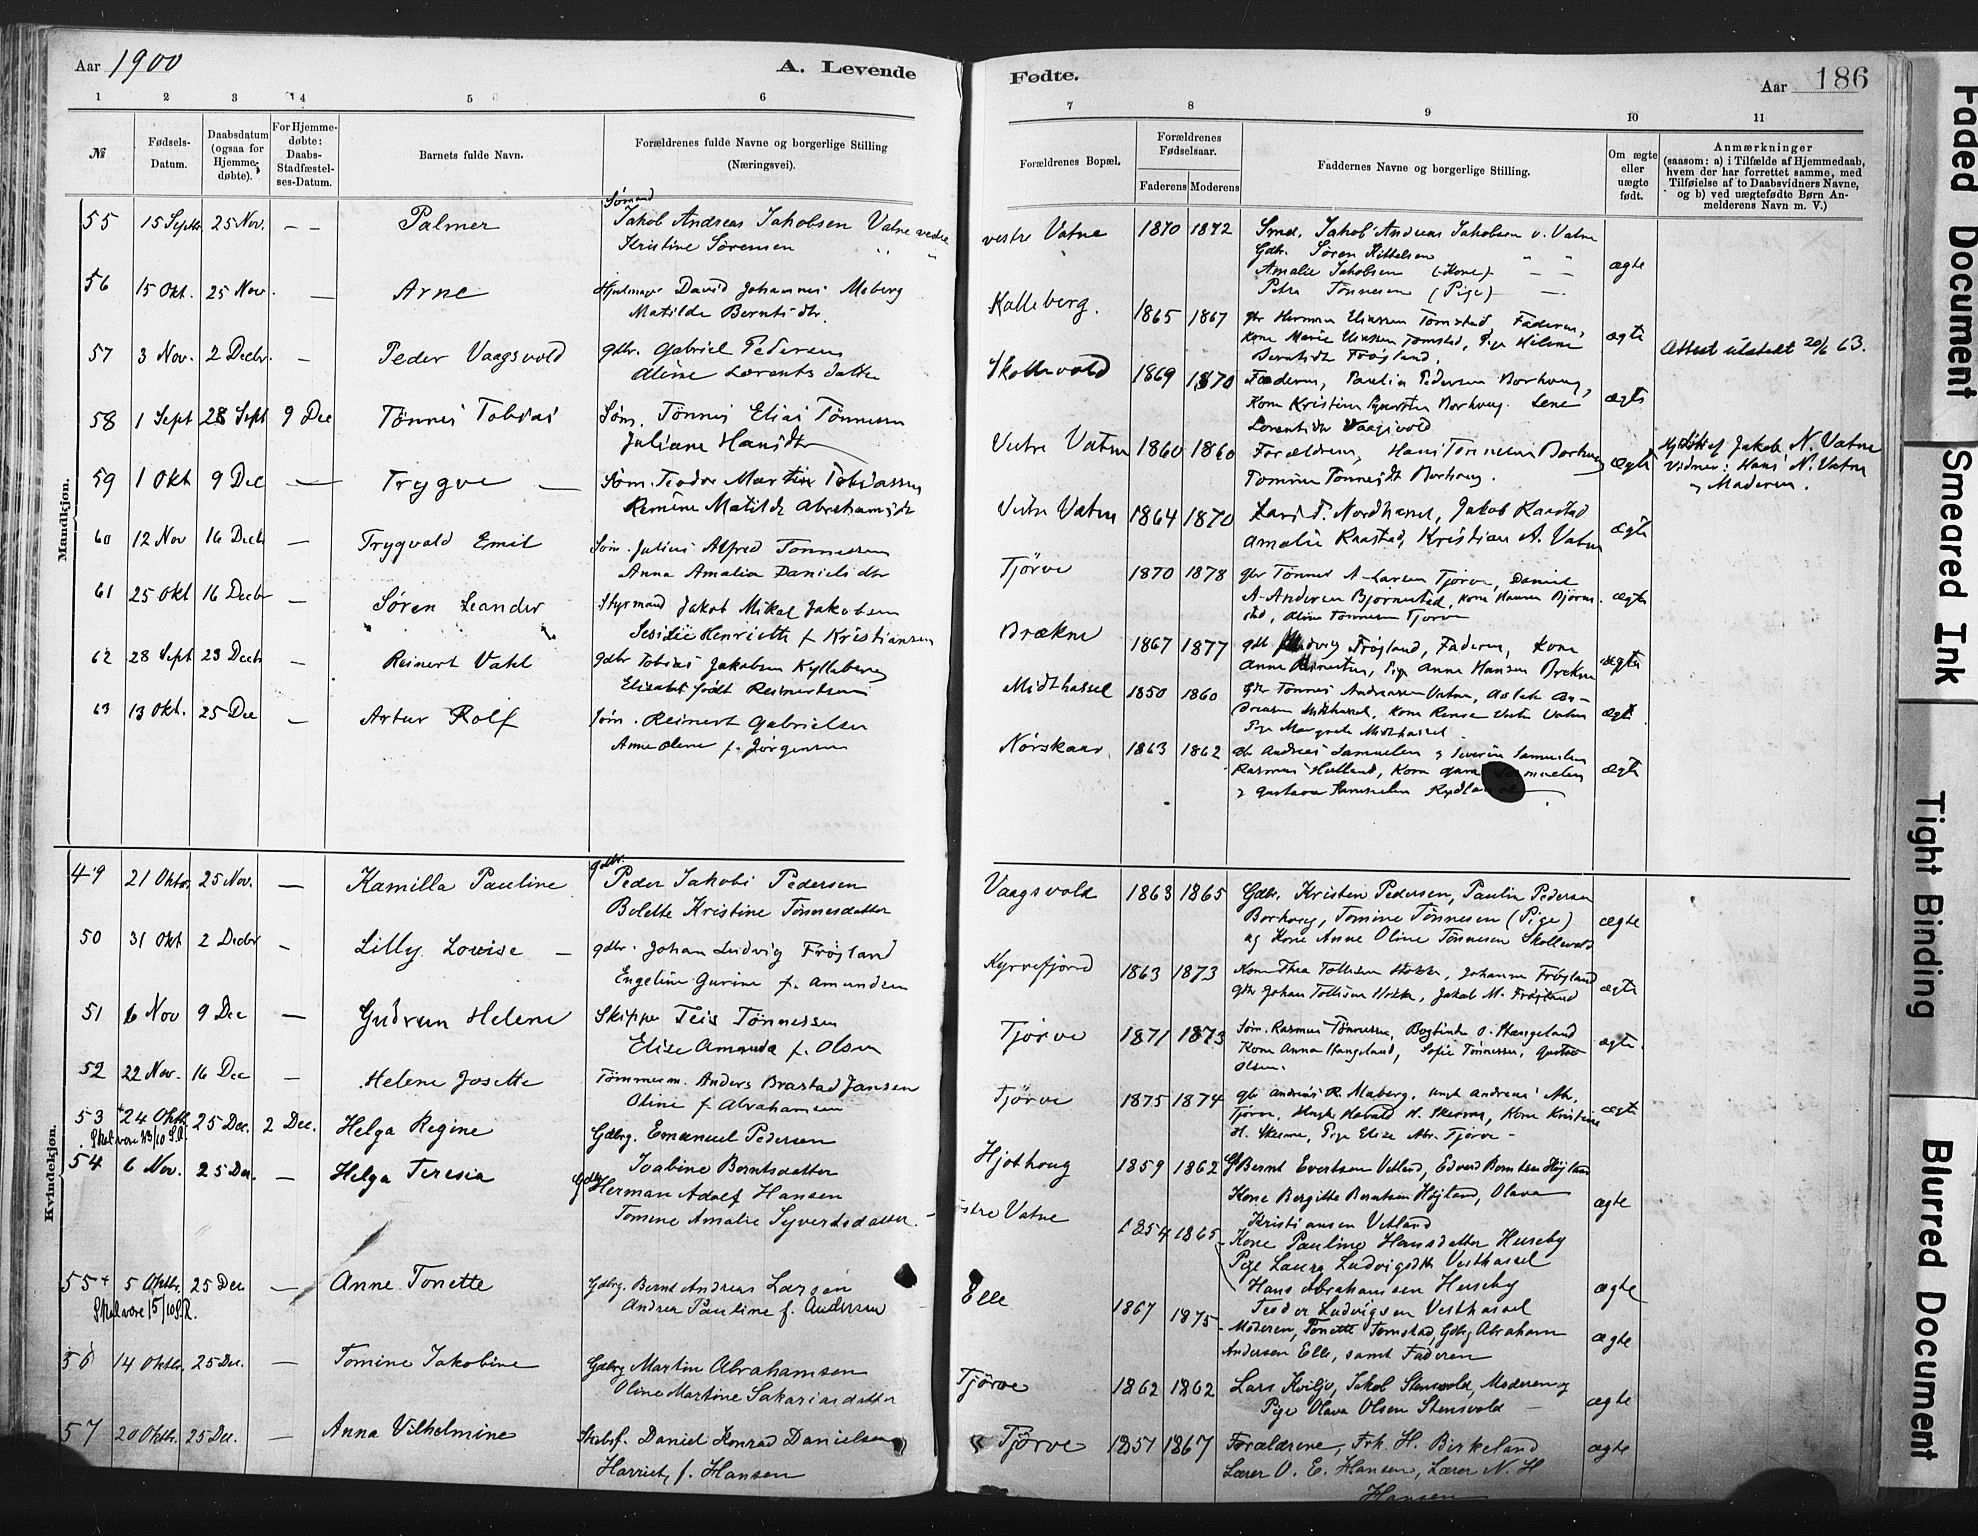 Aar 1900
A. Levende
Fødte.
Aar 186
1 2 3 4 5 6 7 8 9 10 11
№
Fødsels-
Datum.
Daabsdatum
(ogsaa for
Hjemme-
døbte).
For Hjemme-
døbte:
Daabs-
Stadfæstel-
ses-Datum.
Barnets fulde Navn.
Forældrenes fulde Navne og borgerlige Stilling
(Næringsvei).
Forældrenes Bopæl.
Forældrenes
Fødselsaar.
Faderens Moderens
Faddernes Navne og borgerlige Stilling.
Om ægte
eller
uægte
født.
Anmærkninger
(saasom: a) i Tilfælde af Hjemmedaab,
hvem der har forrettet samme, med
Tilføielse af to Daabsvidners Navne,
og b) ved uægtefødte Børn An-
melderens Navn m. V.)
Mandkjøn.
55 15 Septbr 25 Nov. — — Palmer
Sømand
Jakob Andreas Jakobsen Vatne vestre
Kristine Sørensen " "
vestre Vatne 1870 1872
Smd. Jakob Andreas Jakobsen v. Vatne
Gdbr. Søren Kittelsen " "
Amalie Jakobsen (Kone) — —
Petra Tønnesen (Pige) —
ægte
56 15 Okt. 25 Nov. — Arne
Hjulmager David Johannes Moberg
Matilde Berntsdtr.
Kalleberg. 1865 1867
gbr Herman Eliassen Tomstad, Faderen,
Kone Marie Eliassen Tomstad, Pige Helene
Berntsdt Frøjland.
ægte
57 3 Nov. 2 Decbr. — Peder Vaagsvold
gdbr. Gabriel Pedersen
Oline Lorentsdatter
Skollevold 1869 1870
Faderen, Paulin Pedersen Borhoug,
Kone Kristine Borhoug. Lene
Lorentsdtr Vaagsvold
ægte
Attest utstedt 20/6 63.
58 1 Sept 28 Sept 9 Dec Tønnes Tobias
Søm. Tønnes Elias Tønnesen
Juliane Hansdtr
Vestre Vatne 1860 1860
Forældrene, Hans Tønnesen Borhoug
Tomine Tønnesdt Borhoug.
ægte
Hj.døbt af Jakob N. Vatne
Vidner: Hans N. Vatne
og Moderen.
59 1 Okt 9 Dec — Trygve —
Søm. Teodor Martin Tobiassen
Remine Matilde Abrahamsdt
Vestre Vatne 1864 1870
Lars T. Nordhassel, Jakob Raastad
Amalie Raastad, Kristian A. Vatne
ægte
60 12 Nov 16 Decb — Trygvald Emil
Søm. Julius Alfred Tønnesen
Anna Amalia Danielsdtr
Tjörve 1870 1878
gbr Tønnes A. Larsen Tjörve, Daniel
A. Andersen Bjørnestad, Kone Hanna Bjørne-
stad, Oline Tønnesen Tjörve
ægte
61 25 Okt 16 Decbr — Søren Leander
Styrmand Jakob Mikal Jakobsen
Sesilie Henriette f. Kristiansen
Brækne 1867 1877
gdb Ludvig Frøjland, Faderen, Kone
Anne Reinertsen, Pige Anna Hansen Brekne
ægte
62 28 Sept 23 Decb — Reinert Vahl
gdbr Tobias Jakobsen Kylleberg
Elisabet født Reinertsen
Midthassel 1850 1860
gbr Tønnes Andreassen Vatne, Aslak An-
dreasen Midthassel, Kone Rense Vestre Vatne
Pige Margrete Midthassel.
ægte
63 13 Okt. 25 Dec — Artur Rolf
Søm. Reinert Gabrielsen
Anne Oline f. Jørgensen
Nörskaar 1863 1862
gbr Andreas Samuelsen og Severin Samuelsen
Rasmus Hulland, Kone Samuelsen
og Gustava Samuelsen
ægte
Kvindekjøn.
49 21 Oktbr. 25 Nov. — Kamilla Pauline
Gdbr.
Peder Jakobi Pedersen
Bolette Kristine Tönnesdatter
Vaagsvold 1863 1865
Gdbr. Kristen Pedersen, Paulin Pedersen
Borhoug, Tomine Tönnesen (Pige)
og Kone Anne Oline Tönnesen Skollevold
ægte
50 31 Okt 2 Decbr — Lilly Lovise —
gdbr. Johan Ludvig Frøjland
Engeline Gurine f. Amundsen
Kyrrefjord 1863 1873
Kone Thea Tollisen Stokke, Johanne Frøjland
gbr Johan Tollisen Stokke, Jakob M. Frøjland
ægte
51 6 Nov 9 Dec — Gudrun Helene
Skipper Teis Tönnessen
Elise Amanda f. Olsen
Tjörve 1871 1873
Søm. Rasmus Tönnessen, Bogbinder O. Stangeland
Kone Anna Stangeland, Sofie Tönnessen, Gustav
Olsen.
ægte.
52 22 Nov. 16 Dec — Helene Josette
Tømmerm. Anders Brastad Jansen
Oline f. Abrahamsen
Tjörve 1875 1874
gbr Andreas R. Moberg, Ungk Andreas Ab.
Tjörve, Ungk Harald H. Skeime, Kone Kristine
H. Skeime, Pige Elise Abr. Tjörve —
ægte
53 + 24 Oktb. 25 Dec. 2 Dec. Helga Regine
Skal være 23/10 S.R.
Gdbrg. Emanuel Pedersen
Joabine Berntsdatter
Hjothoug 1859 1862
G Bernt Evertsen Vetland, Edvard Berntsen Höjland
Kone Bergitte Berntsen Höjland, Olava
Kristiansen Vetland
ægte
54 6 Nov. 25 Dec. — Helga Teresia
Gdbr
Herman Adolf Hansen
Tomine Amalie Syvertsdatter.
Vestre Vatne 1854 1865
Kone Pauline Hansdatter Huseby
Pige Laura Ludvigsdtr Vesthassel
Hans Abrahamsen Huseby
Teodor Ludvigsen Vesthassel
ægte
55 + 5 Oktbr. 25 Dec — Anne Tonette
Skal være 15/10 S.R.
Gdbrg. Bernt Andreas Larsen
Andrea Pauline f. Andersen
Elle 1867 1875
Moderen, Tonette Tomstad, Gdbrg Abraham
Andersen Elle, samt Faderen
ægte
56 14 Oktbr. 25 Dec. — Tomine Jakobine
Gdbrg Martin Abrahamsen
Oline Martine Sakariasdatter
Tjörve 1862 1862
Lars Kviljo, Jakob Stensvold, Moderen og
Pige Olava Olsen Stensvold —
ægte
57 20 Oktbr. 25 Dec. — Anna Vilhelmine
Skibsf. Daniel Konrad Danielsen
Harriet, f. Hansen
Tjörve 1857 1867
Forældrene, Frk. H. Birkeland
Lærer O. E. Hansen, Lærer N. H
Hansen
ægte
Faded Document
Smeared Ink
Tight Binding
Blurred Document